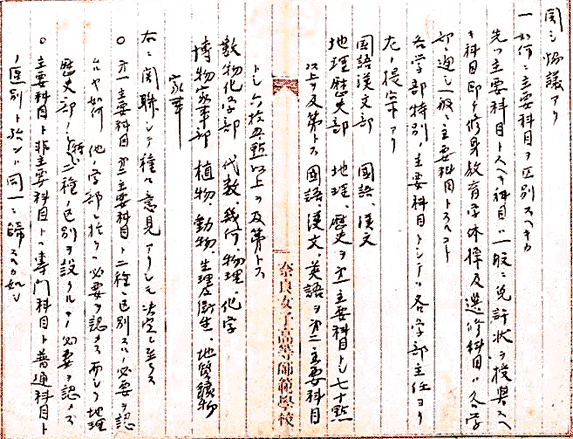 関シ協議アリ
一 如何ニ主要科目ヲ区別スヘキカ
先ツ主要科目トスヘキ科目ハ一般ニ免許状ヲ授與スヘ
キ科目即チ修身教育字体操及選修科目ハ各学
部ヲ通シ一般ニ主要科目トスルコト
各学部特別ノ主要科目トシテハ各学部主任ヨリ
左ノ提案アリ
国語漢文部 国語、漢文
地理歴史部 地理、歴史ヲ第一主要科目トシ七十點
以上ヲ及第トス 国語、漢文、英語ヲ第二主要科目
奈良女子高等師範學校
トシ六拾五點以上ヲ及第トス
数物化学部 代数、幾何、物理、化学
博物家事部 植物、動物、生理及衛生、地質鑛物
家事
右ニ関聯シテ種々意見アリシモ決定ニ至ラス
○第一主要科目第二主要科目ト二種ニ区別スルノ必要ヲ認
ムルヤ如何 他ノ学部ニ於テハ必要ヲ認メス而シテ地理
歴史部ノミ特ニ二種ノ区別ヲ設クルノ必要ヲ認メス
○主要科目ト非主要科目トハ専門科目ト普通科目ト
ノ區別ト殆ント同一ニ歸スルカ如シ